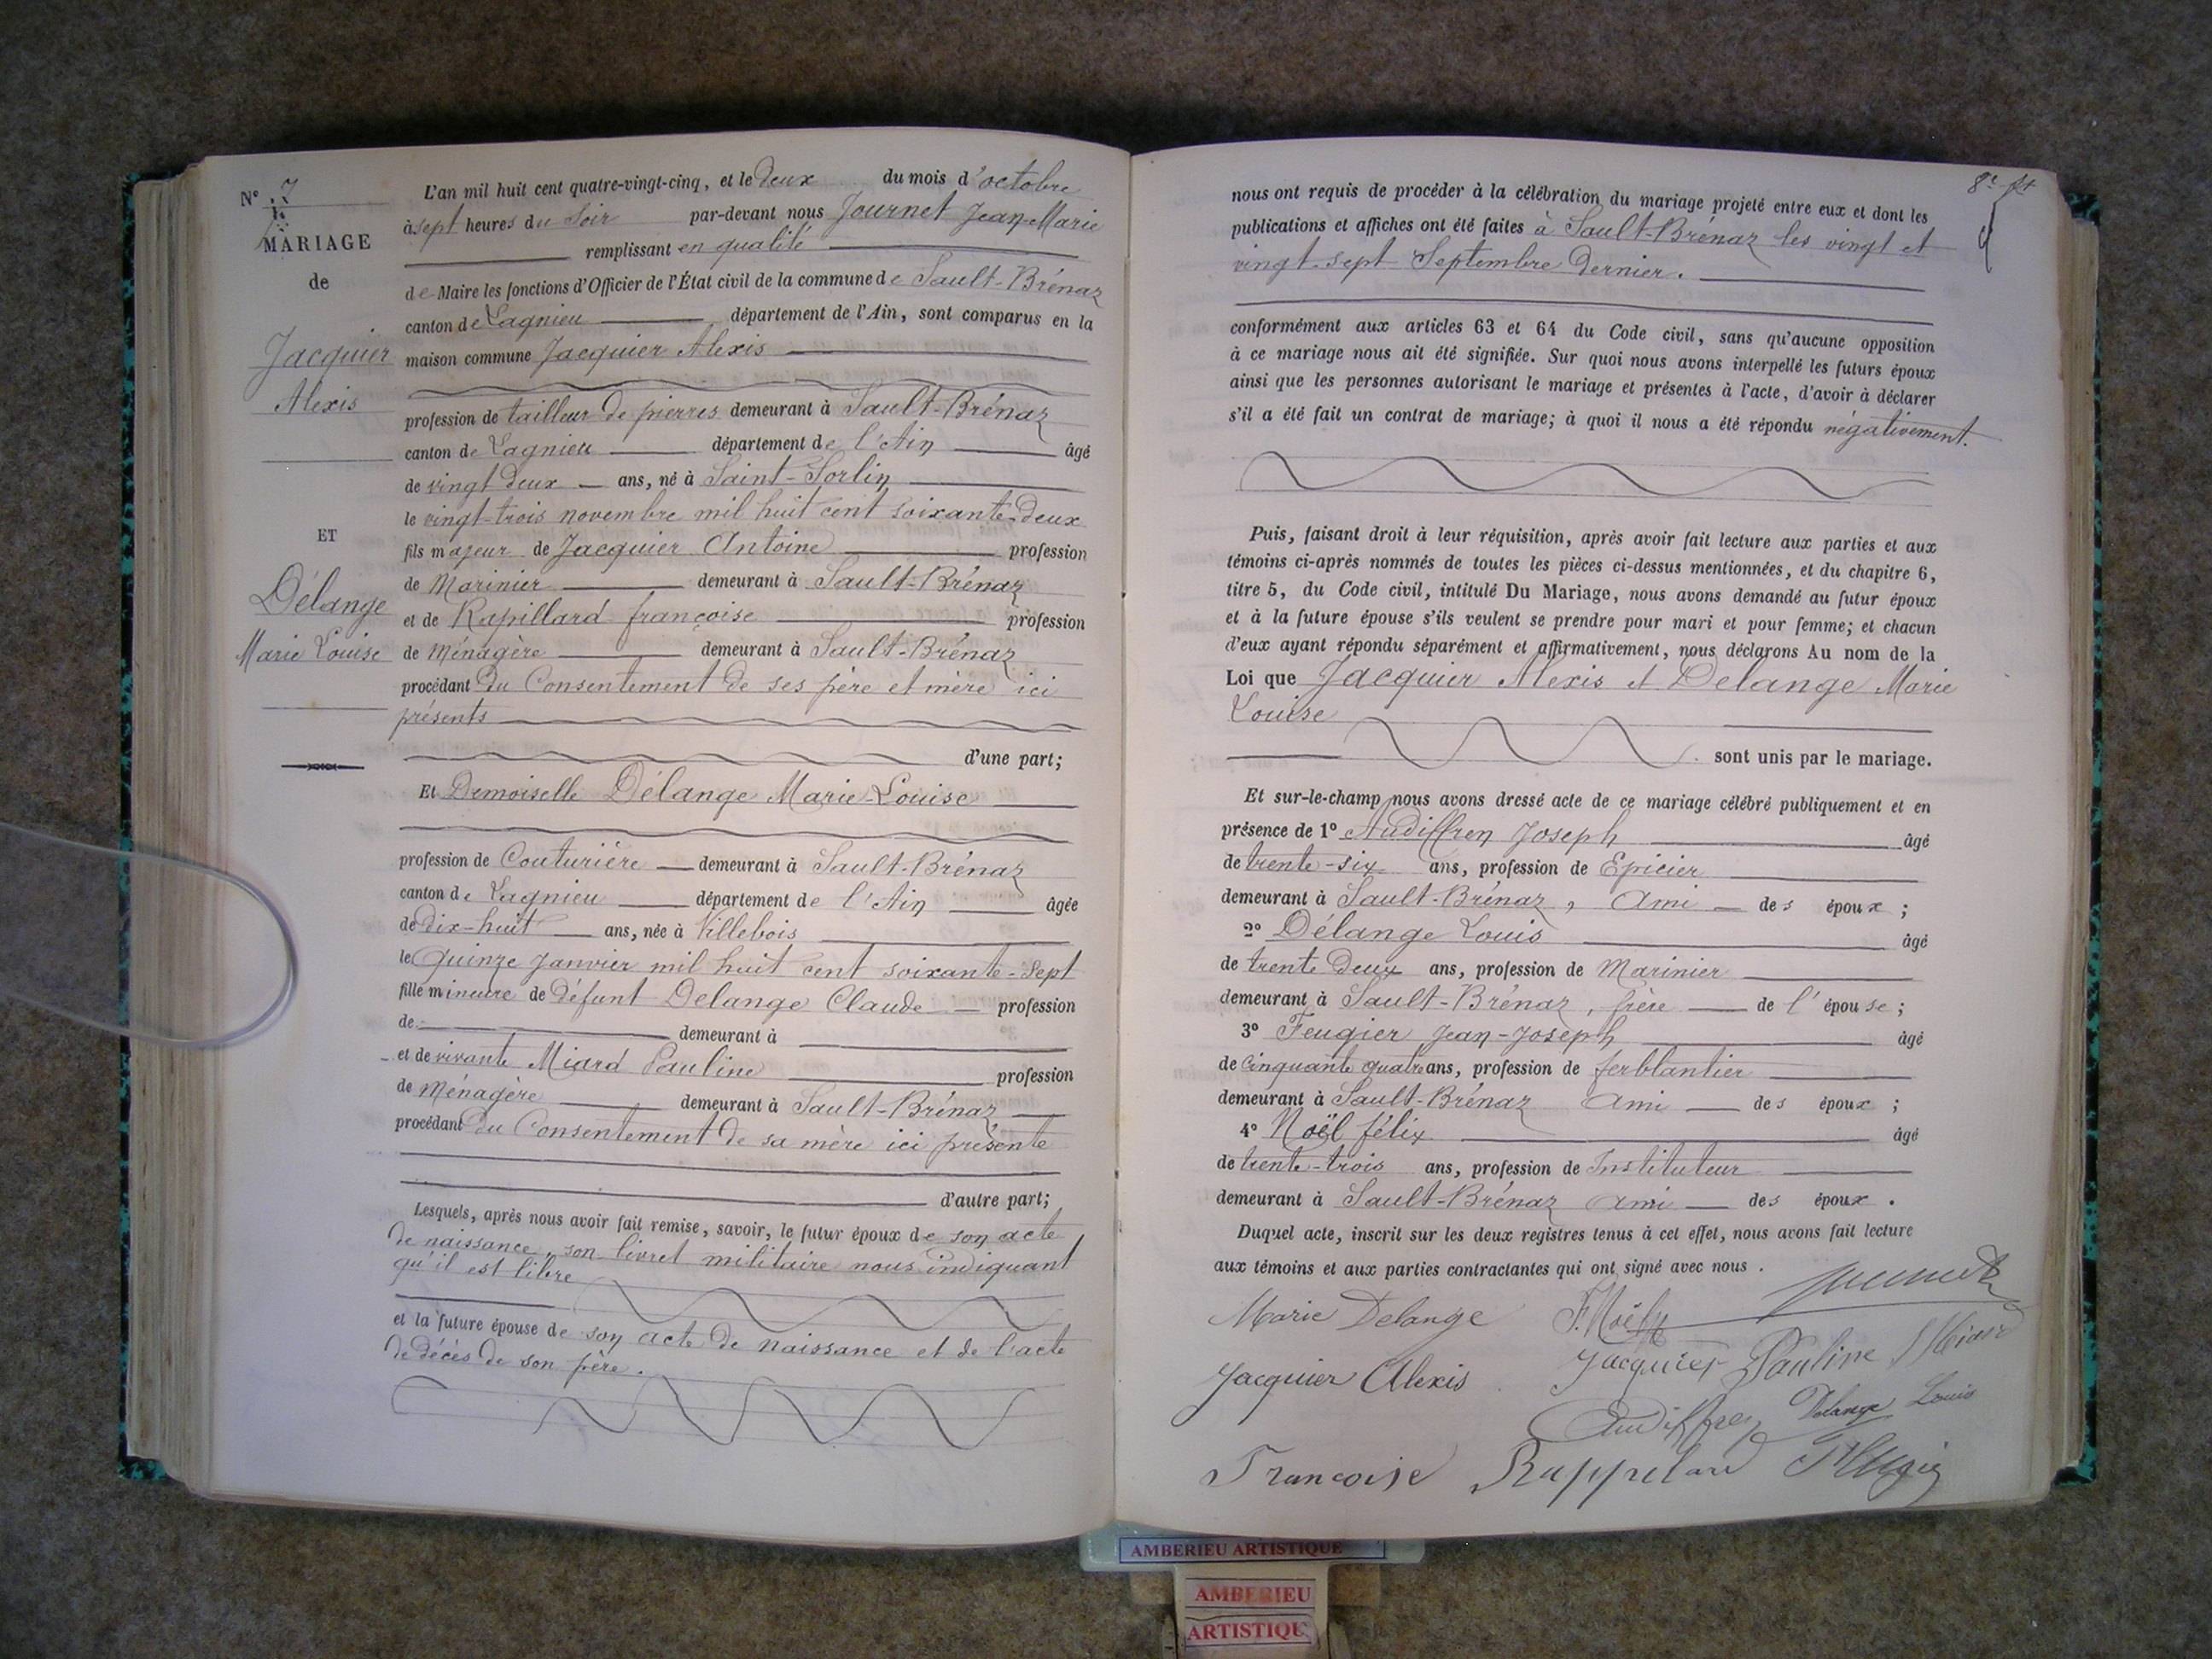 N° 7
MARIAGE
de
Jacquier
Alexis
ET
Délange
Marie Louise
L'an mil huit cent quatre-vingt-cinq, et le deux du mois d'octobre
à sept heures du Soir par-devant nous Journet Jean-Marie
remplissant en qualité
de Maire les fonctions d'Officier de l'État civil de la commune de Sault-Brénaz
canton de Lagnieu département de l'Ain, sont comparus en la
maison commune Jacquier Alexis
profession de tailleur de pierres demeurant à Sault-Brénaz
canton de Lagnieu département de l'Ain âgé
de vingt deux ans, né à Saint-Sorlin
le vingt-trois novembre mil huit cent soixante-deux
fils majeur de Jacquier Antoine profession
de Marinier demeurant à Sault-Brénaz
et de Rapillard françoise profession
de Ménagère demeurant à Sault-Brénaz
procédant du Consentement de ses père et mère ici
présents
d'une part;
Et Demoiselle Délange Marie-Louise
profession de Couturière demeurant à Sault-Brénaz
canton de Lagnieu département de l'Ain âgée
de dix-huit ans, née à Villebois
le quinze janvier mil huit cent soixante-sept
fille mineure de défunt Delange Claude profession
de demeurant à
et de vivante Miard Pauline profession
de Ménagère demeurant à Sault-Brénaz
procédant du Consentement de sa mère ici présente
d'autre part;
Lesquels, après nous avoir fait remise, savoir, le futur époux de son acte
de naissance, son livret militaire nous indiquant
qu'il est libre
et la future épouse de son acte de naissance et de l'acte
de décès de son père.
8e
nous ont requis de procéder à la célébration du mariage projeté entre eux et dont les
publications et affiches ont été faites à Sault-Brénaz les vingt et
vingt-sept Septembre dernier.
conformément aux articles 63 et 64 du Code civil, sans qu'aucune opposition
à ce mariage nous ait été signifiée. Sur quoi nous avons interpellé les futurs époux
ainsi que les personnes autorisant le mariage et présentes à l'acte, d'avoir à déclarer
s'il a été fait un contrat de mariage; à quoi il nous a été répondu négativement.
Puis, faisant droit à leur réquisition, après avoir fait lecture aux parties et aux
témoins ci-après nommés de toutes les pièces ci-dessus mentionnées, et du chapitre 6,
titre 5, du Code civil, intitulé Du Mariage, nous avons demandé au futur époux
et à la future épouse s'ils veulent se prendre pour mari et pour femme; et chacun
d'eux ayant répondu séparément et affirmativement, nous déclarons Au nom de la
Loi que Jacquier Alexis et Delange Marie
Louise
sont unis par le mariage.
Et sur-le-champ nous avons dressé acte de ce mariage célébré publiquement et en
présence de 1° Audiffren Joseph âgé
de trente-six ans, profession de Epicier
demeurant à Sault-Brénaz, Ami des époux;
2° Délange Louis âgé
de trente deux ans, profession de Marinier
demeurant à Sault-Brénaz, frère de l'épouse;
3° Feugier Jean-Joseph âgé
de Cinquante quatre ans, profession de ferblantier
demeurant à Sault-Brénaz Ami des époux;
4° Noël félix âgé
de trente-trois ans, profession de Instituteur
demeurant à Sault-Brénaz Ami des époux.
Duquel acte, inscrit sur les deux registres tenus à cet effet, nous avons fait lecture
aux témoins et aux parties contractantes qui ont signé avec nous.
Marie Delange F. Noël Journet
Jacquier Alexis Jacquier Pauline Miard
Audiffren Delange Louis
Francoise Rappelard Feugier
AMBERIEU ARTISTIQUE
AMBERIEU
ARTISTIQUE